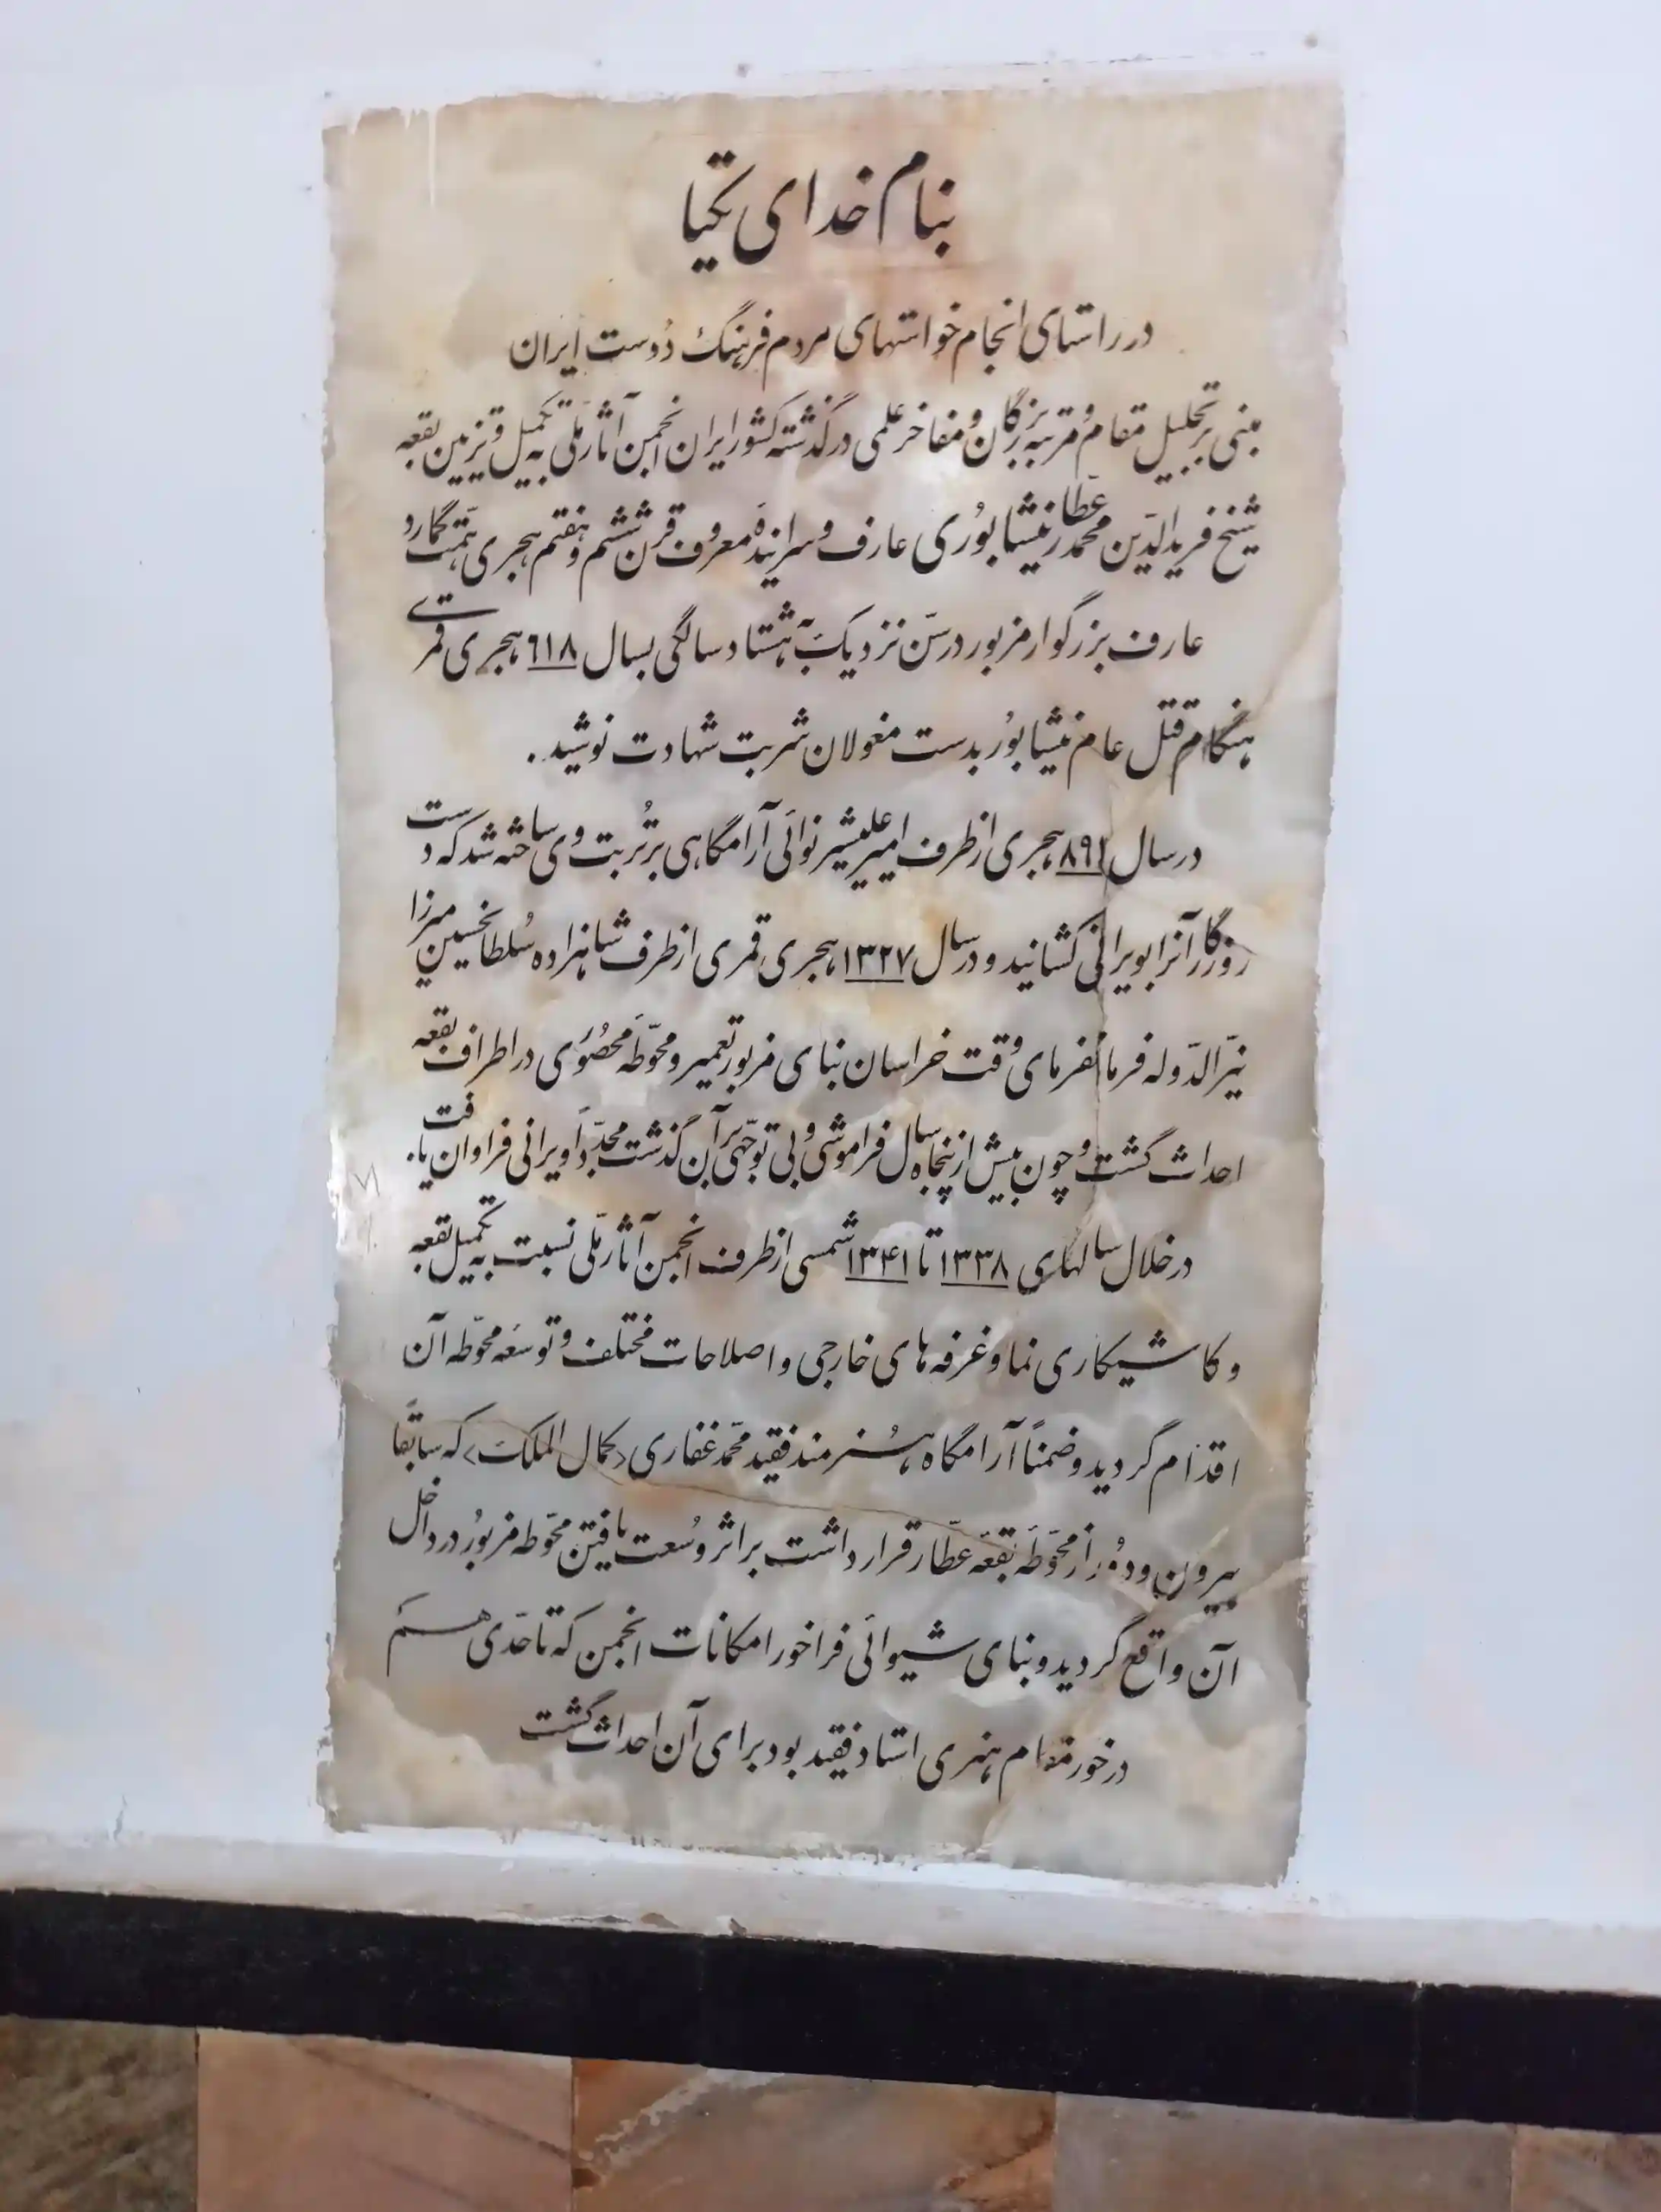 بنام خدای یکتا
در راستای انجام خواستهای مردم فرهنگ دوست ایران
مبنی بر تجلیل مقام و مرتبه بزرگان و مفاخر علمی در گذشته کشور ایران انجمن آثار ملّی به تکمیل و تزیین بقعه
شیخ فریدالدّین محمّد عطّار نیشابوُری عارف و سراینده معروف قرن ششم و هفتم هجری همّت گمارد
عارف بزرگوار مزبور در سنّ نزدیک به هشتاد سالگی بسال ٦١٨ هجری قمری
هنگام قتل عام نیشابوُر بدست مغولان شربت شهادت نوشید.
در سال ٨٩١ هجری از طرف امیر علیشیر نوائی آرامگاهی بر تُربت وی ساخته شد که دست
روزگار آنرا بویرانی کشانید و در سال ١٣٢٧ هجری قمری از طرف شاهزاده سُلطانحسین میرزا
نیّرالدّوله فرمانفرمای وقت خراسان بنای مزبور تعمیر و محوّطه مخصُوصی در اطراف بقعه
احداث گشت و چون بیش از پنجاه سال فراموشی و بی توجّهی بر آن گذشت مجدّداً ویرانی فراوان یافت.
در خلال سالهای ١٣٣٨ تا ١٣۴١ شمسی از طرف انجمن آثار ملّی نسبت به تکمیل بقعه
و کاشیکاری نما و غرفه های خارجی و اصلاحات مختلف و توسعه محوّطه آن
اقدام گردید و ضمناً آرامگاه هُنرمند فقید محمّد غفاری <کمال الملک> که سابقاً
بیرون و دوُر از محوّطه بقعه عطّار قرار داشت بر اثر وسُعت یافتن محوّطه مزبوُر در داخل
آن واقع گردید و بنای شیوائی فراخور امکانات انجمن که تا حدّی هم
در خور مقام هنری استاد فقید بود برای آن احداث گشت